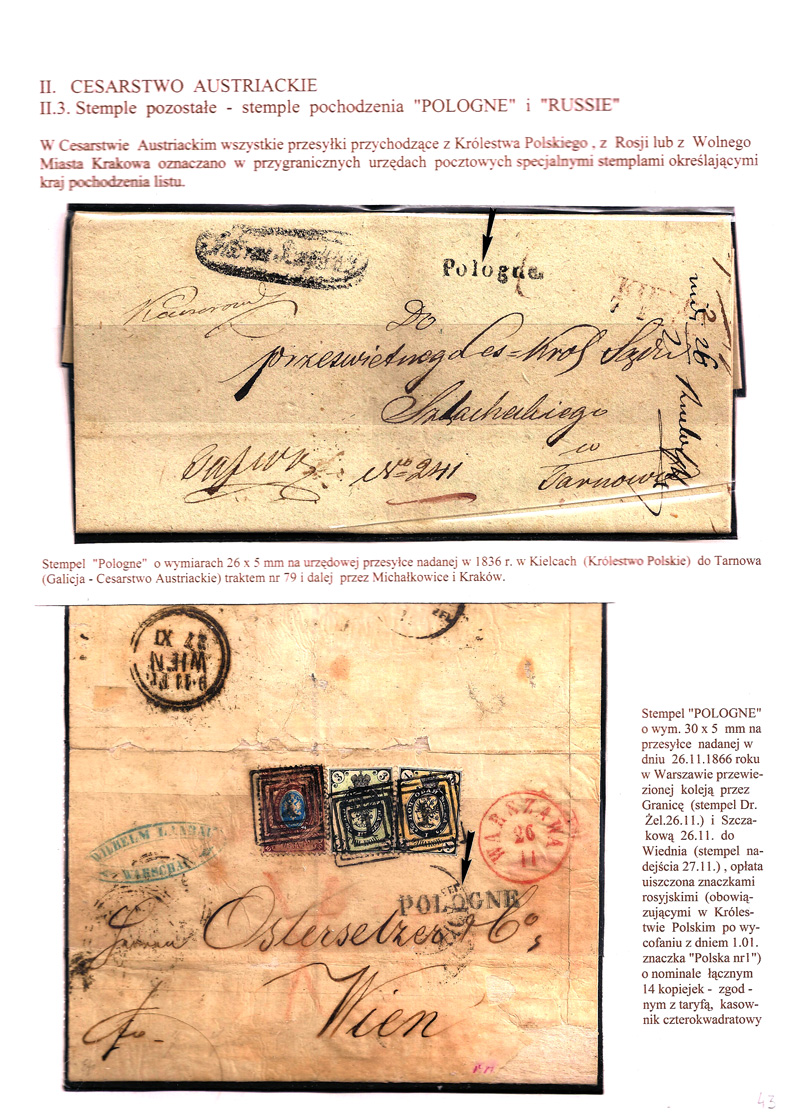 II. CESARSTWO AUSTRIACKIE
II.3. Stemple pozostałe - stemple pochodzenia "POLOGNE" i "RUSSIE"
W Cesarstwie Austriackim wszystkie przesyłki przychodzące z Królestwa Polskiego , z Rosji lub z Wolnego
Miasta Krakowa oznaczano w przygranicznych urzędach pocztowych specjalnymi stemplami określającymi
kraj pochodzenia listu.
Pologne.
Do
prześwietnego Ces=Krol Sądu
Szlacheckiego
w
Tarnowie
No 241
Stempel "Pologne" o wymiarach 26 x 5 mm na urzędowej przesyłce nadanej w 1836 r. w Kielcach (Królestwo Polskie) do Tarnowa
(Galicja - Cesarstwo Austriackie) traktem nr 79 i dalej przez Michałkowice i Kraków.
27 XI
WIEN
3
3
1
WARSZAWA
26
11
WILHELM
WARSCHAU
POLOGNE
Herren Ostersetzer & Co,
Wien
Stempel "POLOGNE"
o wym. 30 x 5 mm na
przesyłce nadanej w
dniu 26.11.1866 roku
w Warszawie przewie-
zionej koleją przez
Granicę (stempel Dr.
Żel.26.11.) i Szcza-
kową 26.11. do
Wiednia (stempel na-
dejścia 27.11.) , opłata
uiszczona znaczkami
rosyjskimi (obowią-
zującymi w Króles-
twie Polskim po wy-
cofaniu z dniem 1.01.
znaczka "Polska nr1")
o nominale łącznym
14 kopiejek - zgod -
nym z taryfą, kasow-
nik czterokwadratowy
43